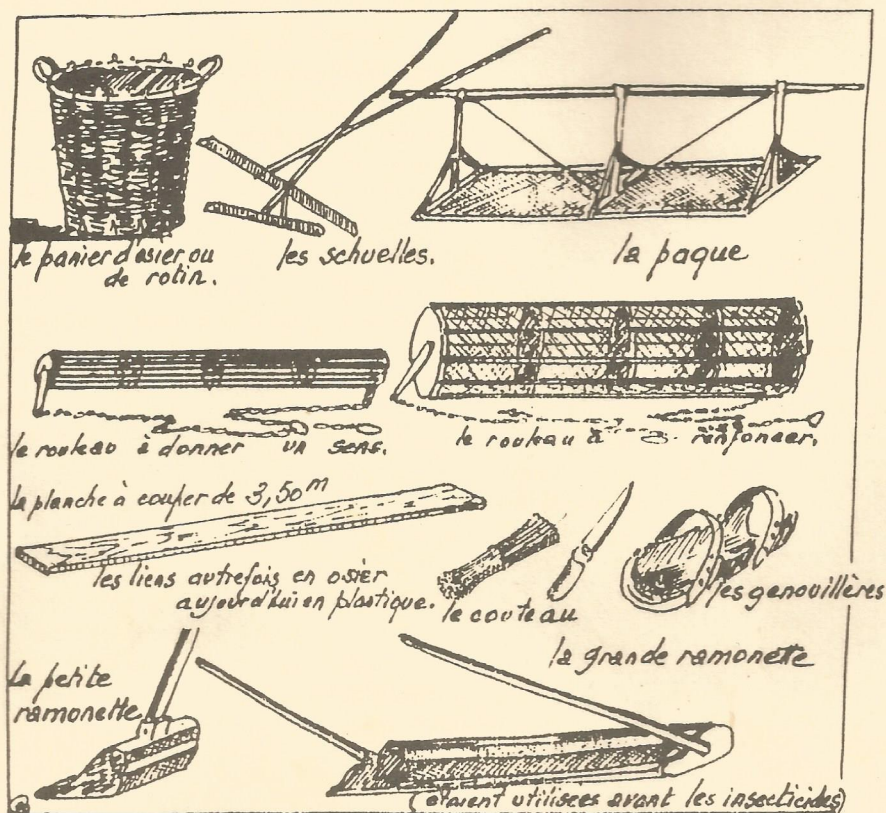 le panier d'osier ou
de rotin.
les schuelles.
la paque
le rouleau à donner un sens.
le rouleau à renfoncer.
la planche à couper de 3,50m
les liens autrefois en osier
aujourd'hui en plastique.
le couteau
les genouillères
la grande ramonette
la petite
ramonette
(étaient utilisées avant les insecticides)